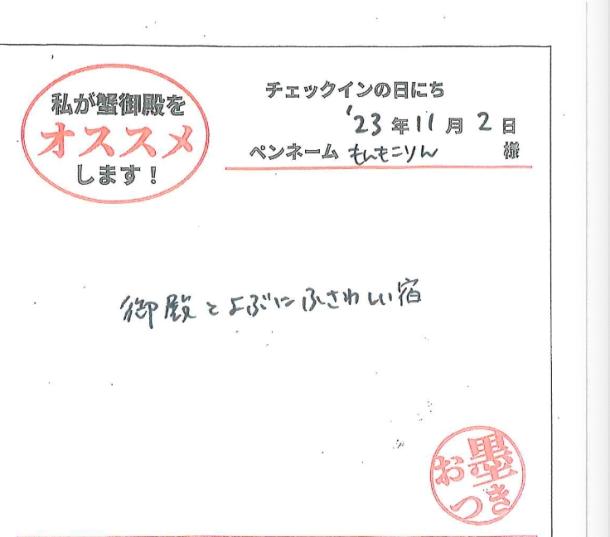 私が蟹御殿を
オススメ
します！
チェックインの日にち
'23年11月2日
ペンネーム もんもこりん 様
御殿とよぶにふさわしい宿
お墨
つき